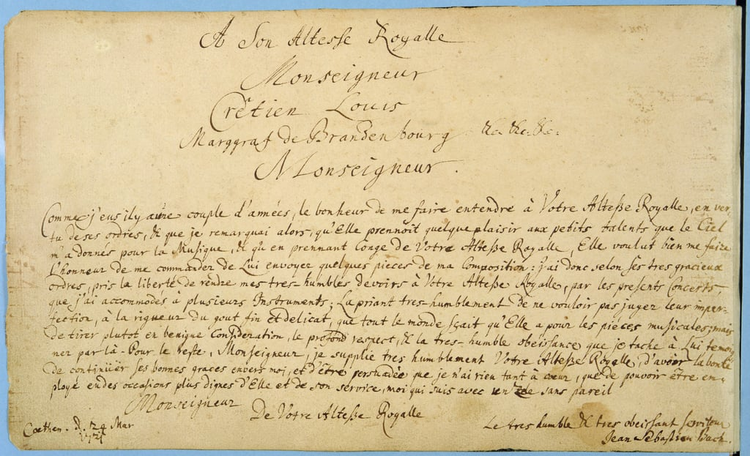 A Son Altesse Royalle
Monseigneur
Crêtien Louis
Marggraf de Brandenbourg &c. &c. &c.
Monseigneur.
Comme j'eus il y a une couple d'années, le bonheur de me faire entendre à Votre Altesse Royalle, en ver
tu de ses ordres, & que je remarquai alors, qu'Elle prennoit quelque plaisir aux petits talents que le Ciel
m'a donnés pour la Musique, & qu'en prennant Conge de Votre Altesse Royalle, Elle voulut bien me faire
l'honneur de me commander de Lui envoyer quelques pieces de ma Composition: j'ai donc selon ses tres gracieux
ordres, pris la liberté de rendre mes tres-humbles devoirs à Votre Altesse Royalle, par les presents Concerts
que j'ai accommodés à plusieurs Instruments; La priant tres-humblement de ne vouloir pas juger leur imper
fection, à la rigueur du gout fin et delicat, que tout le monde sçait qu'Elle a pour les piéces musicales; mais
de tirer plutot en benigne Consideration, le profond respect, & la tres-humble obeissance que je tache à Lui temoi
ner par là. Pour le reste, Monseigneur, je supplie tres humblement Votre Altesse Royalle, d'avoir la bonté
de continüer ses bonnes graces envers moi, et d'être persuadée que je n'ai rien tant à cœur, que de pouvoir être em
ployé en des occasions plus dignes d'Elle et de son service, moi qui suis avec un zele sans pareil
Monseigneur
De Votre Altesse Royalle
Coethen. d. 24 Mar
1721
Le tres humble & tres obeissant serviteur
Jean Sebastien Bach.